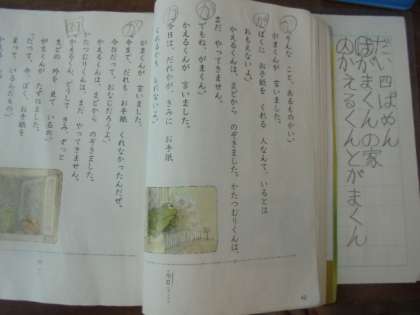 だい四ばめん
がまくんの家
かえるくんとがまくん
そんな こと、あるものかい。」
がまくんが 言いました。
「ぼくに お手紙 くれる 人なんて、いるとは
おもえないよ。」
かえるくんは、まどから のぞきました。かたつむりくんは、
まだ やってきません。
「でもね、がまくん。」
かえるくんが 言いました。
「今日は、だれかが、きみに お手紙
がまくんが 言いました。
「今まで、だれも お手紙 くれなかったんだぜ。
今日だって おなじだろうよ。」
かえるくんは、まどから のぞきました。
かたつむりくんは、まだ やってきません。
「かえるくん、どうして、きみ、ずっと
まどの 外を 見て いるの。」
がまくんが たずねました。
「だって、今、ぼく、お手紙を
まって いるんだもの。」